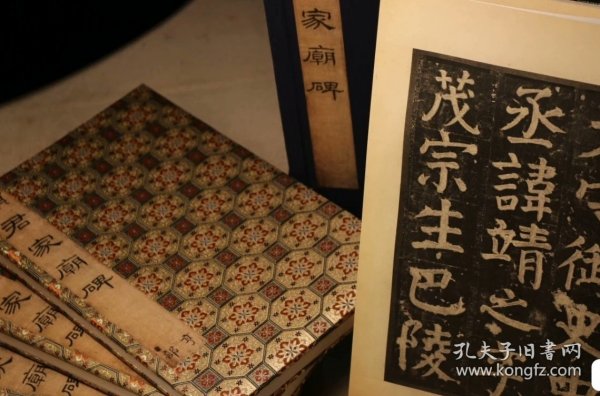 家廟碑
君家廟碑
家廟碑
廟碑
御史
丞諱靖之
茂宗生巴陵
孔夫子旧书网
www.kongfz.com